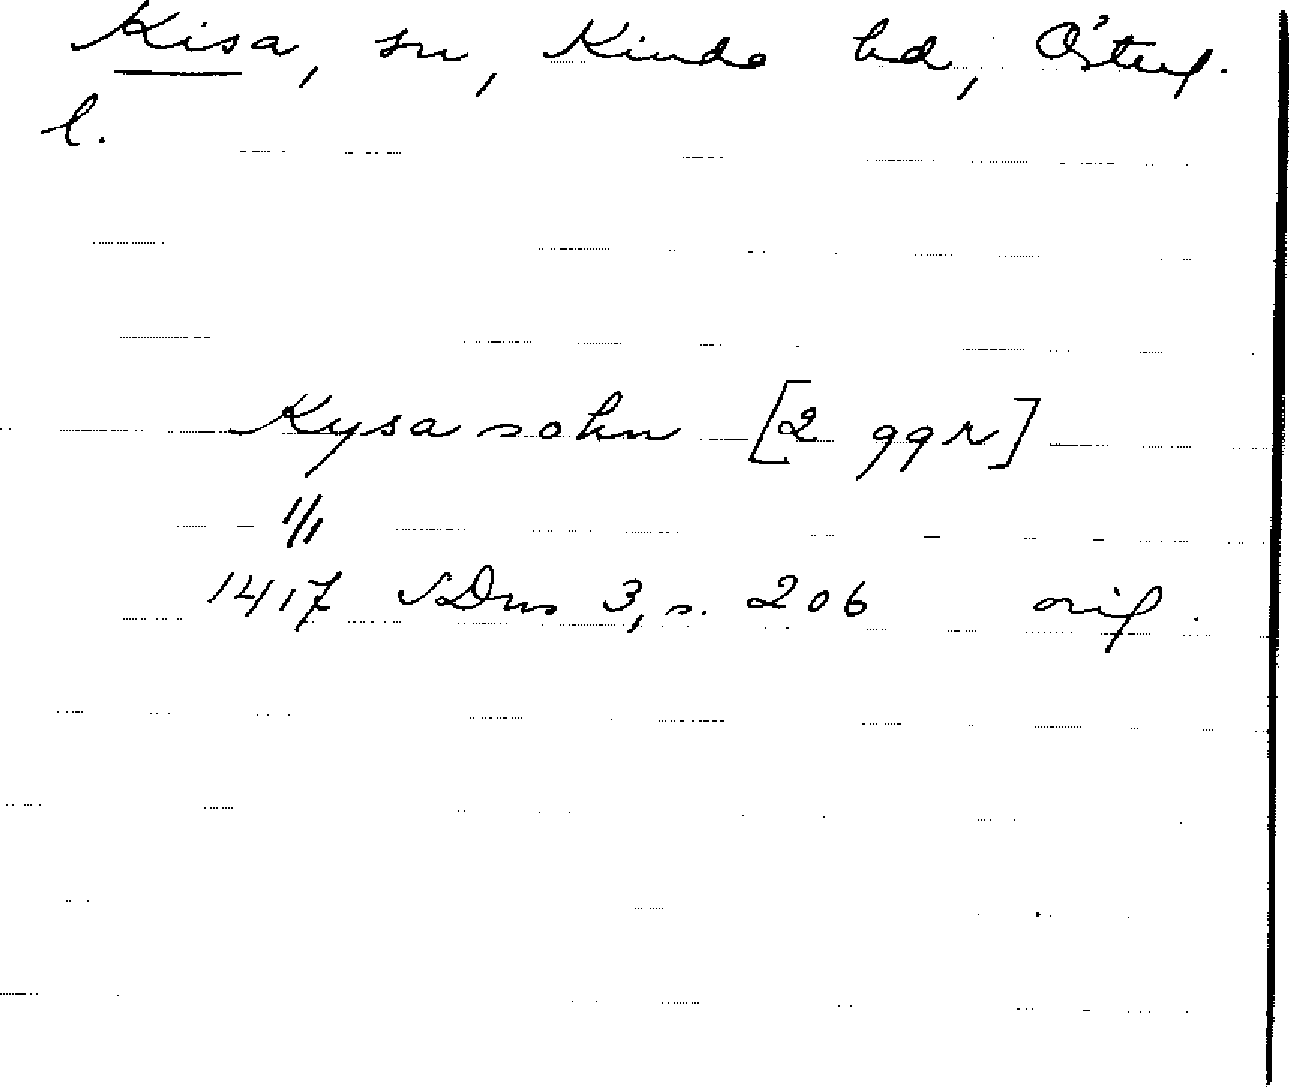 Kisa, sn, Kinda hd, Österg.
l.
Kysasokn [2 ggr]
1/1
1417 SDns 3, s. 206 orig.